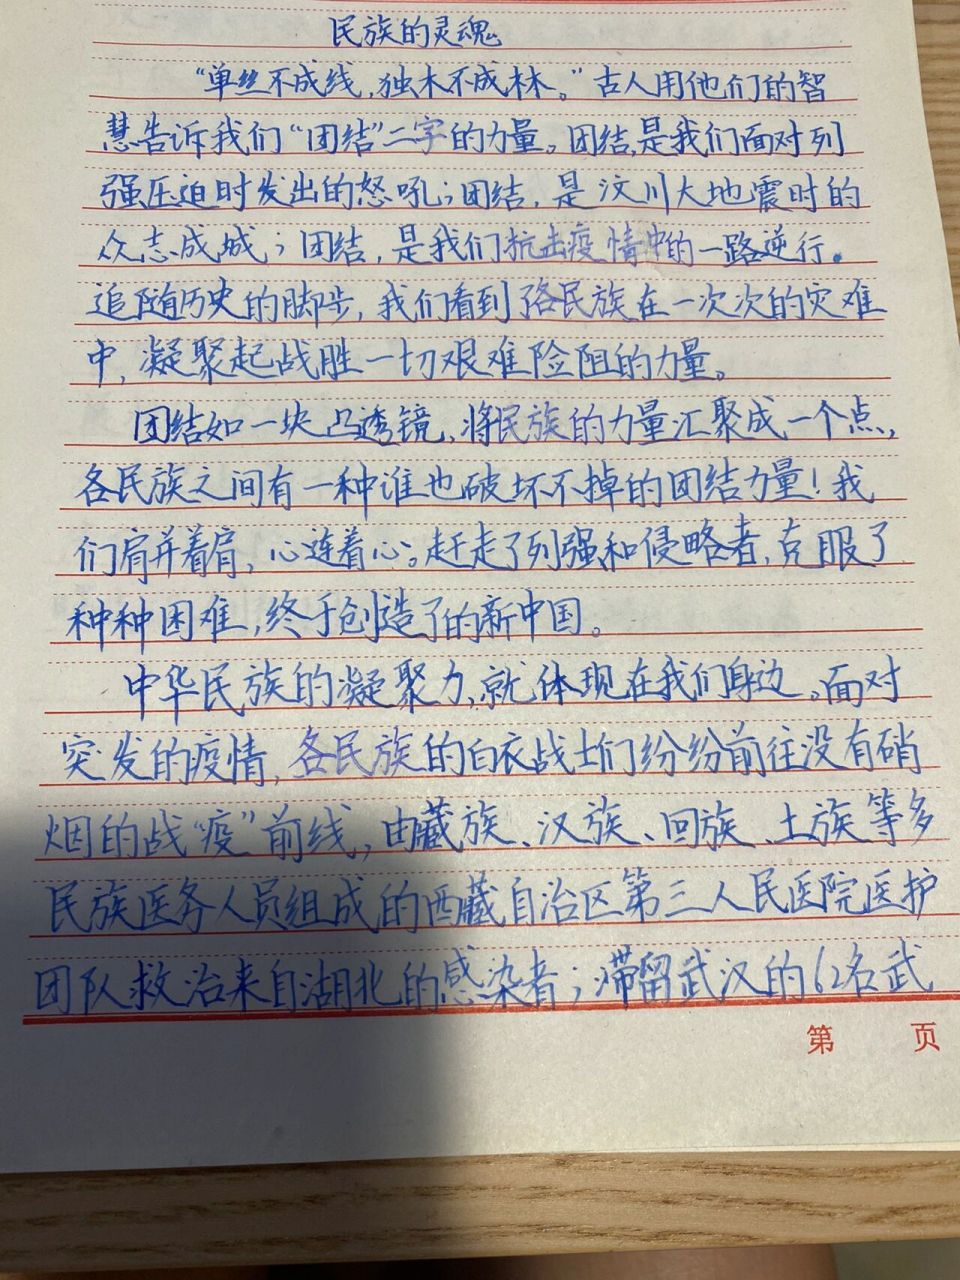 民族的灵魂
“单丝不成线，独木不成林。”古人用他们的智
慧告诉我们“团结”二字的力量。团结，是我们面对列
强压迫时发出的怒吼；团结，是汶川大地震时的
众志成城；团结，是我们抗击疫情中的一路逆行。
追随历史的脚步，我们看到了各民族在一次次的灾难
中，凝聚起战胜一切艰难险阻的力量。
团结如一块凸透镜，将民族的力量汇聚成一个点，
各民族之间有一种谁也破坏不掉的团结力量！我
们肩并着肩，心连着心。赶走了列强和侵略者，克服了
种种困难，终于创造了的新中国。
中华民族的凝聚力，就体现在我们身边。面对
突发的疫情，各民族的白衣战士们纷纷前往没有硝
烟的战“疫”前线，由藏族、汉族、回族、土族等多
民族医务人员组成的西藏自治区第三人民医院医护
团队救治来自湖北的感染者；滞留武汉的62名武
第 页